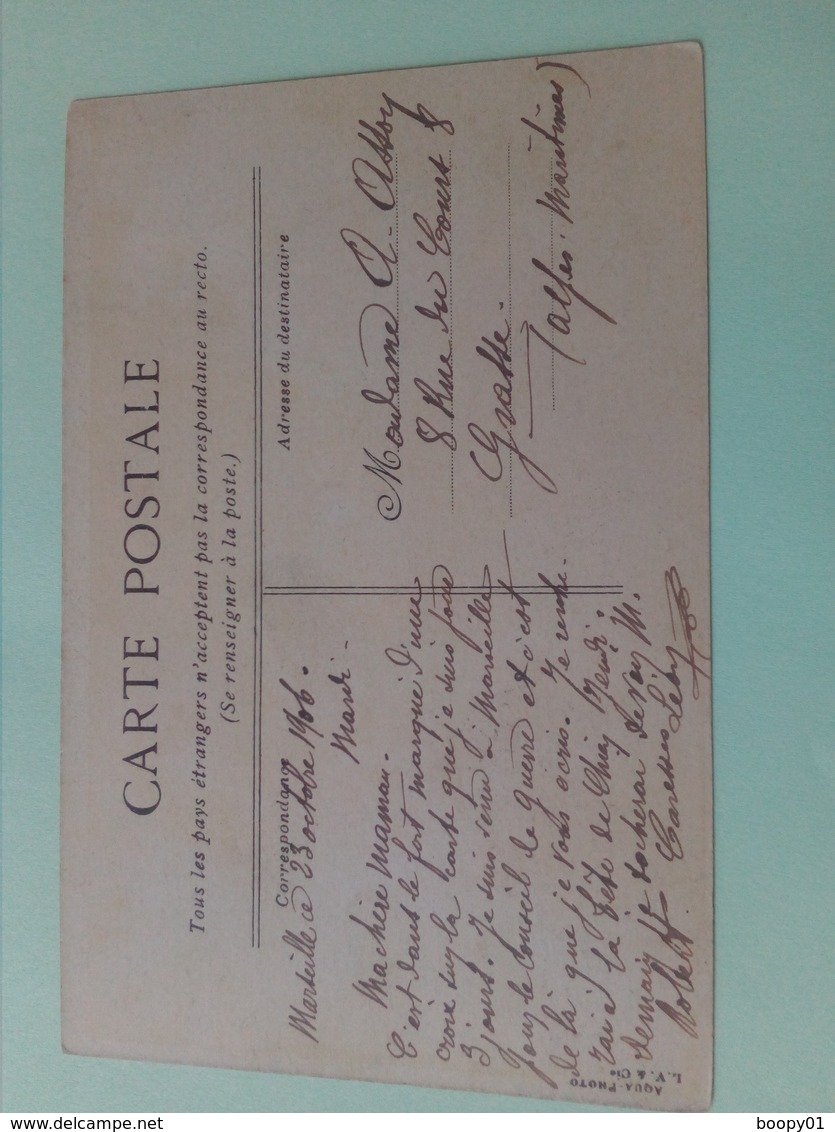 CARTE POSTALE
Tous les pays étrangers n'acceptent pas la correspondance au recto.
(Se renseigner à la poste.)
Correspondance
Marseille ce 23 octobre 1906.
Mardi -
Ma chère maman.
C'est dans le fort marqué d'une
croix sur la carte que je suis pour
3 jours. Je suis venu à Marseille
pour le Conseil de Guerre et c'est
de là que je vous écris. Je
à la Tête de Chien Jeudi.
demain je tacherai de voir M.
Robert. Caresses
Adresse du destinataire
Madame A. Assoy
8 Rue du Cours 8
Grasse.
(Alpes-Maritimes)
AQUA-PHOTO
L. V. & Cie
boopy01